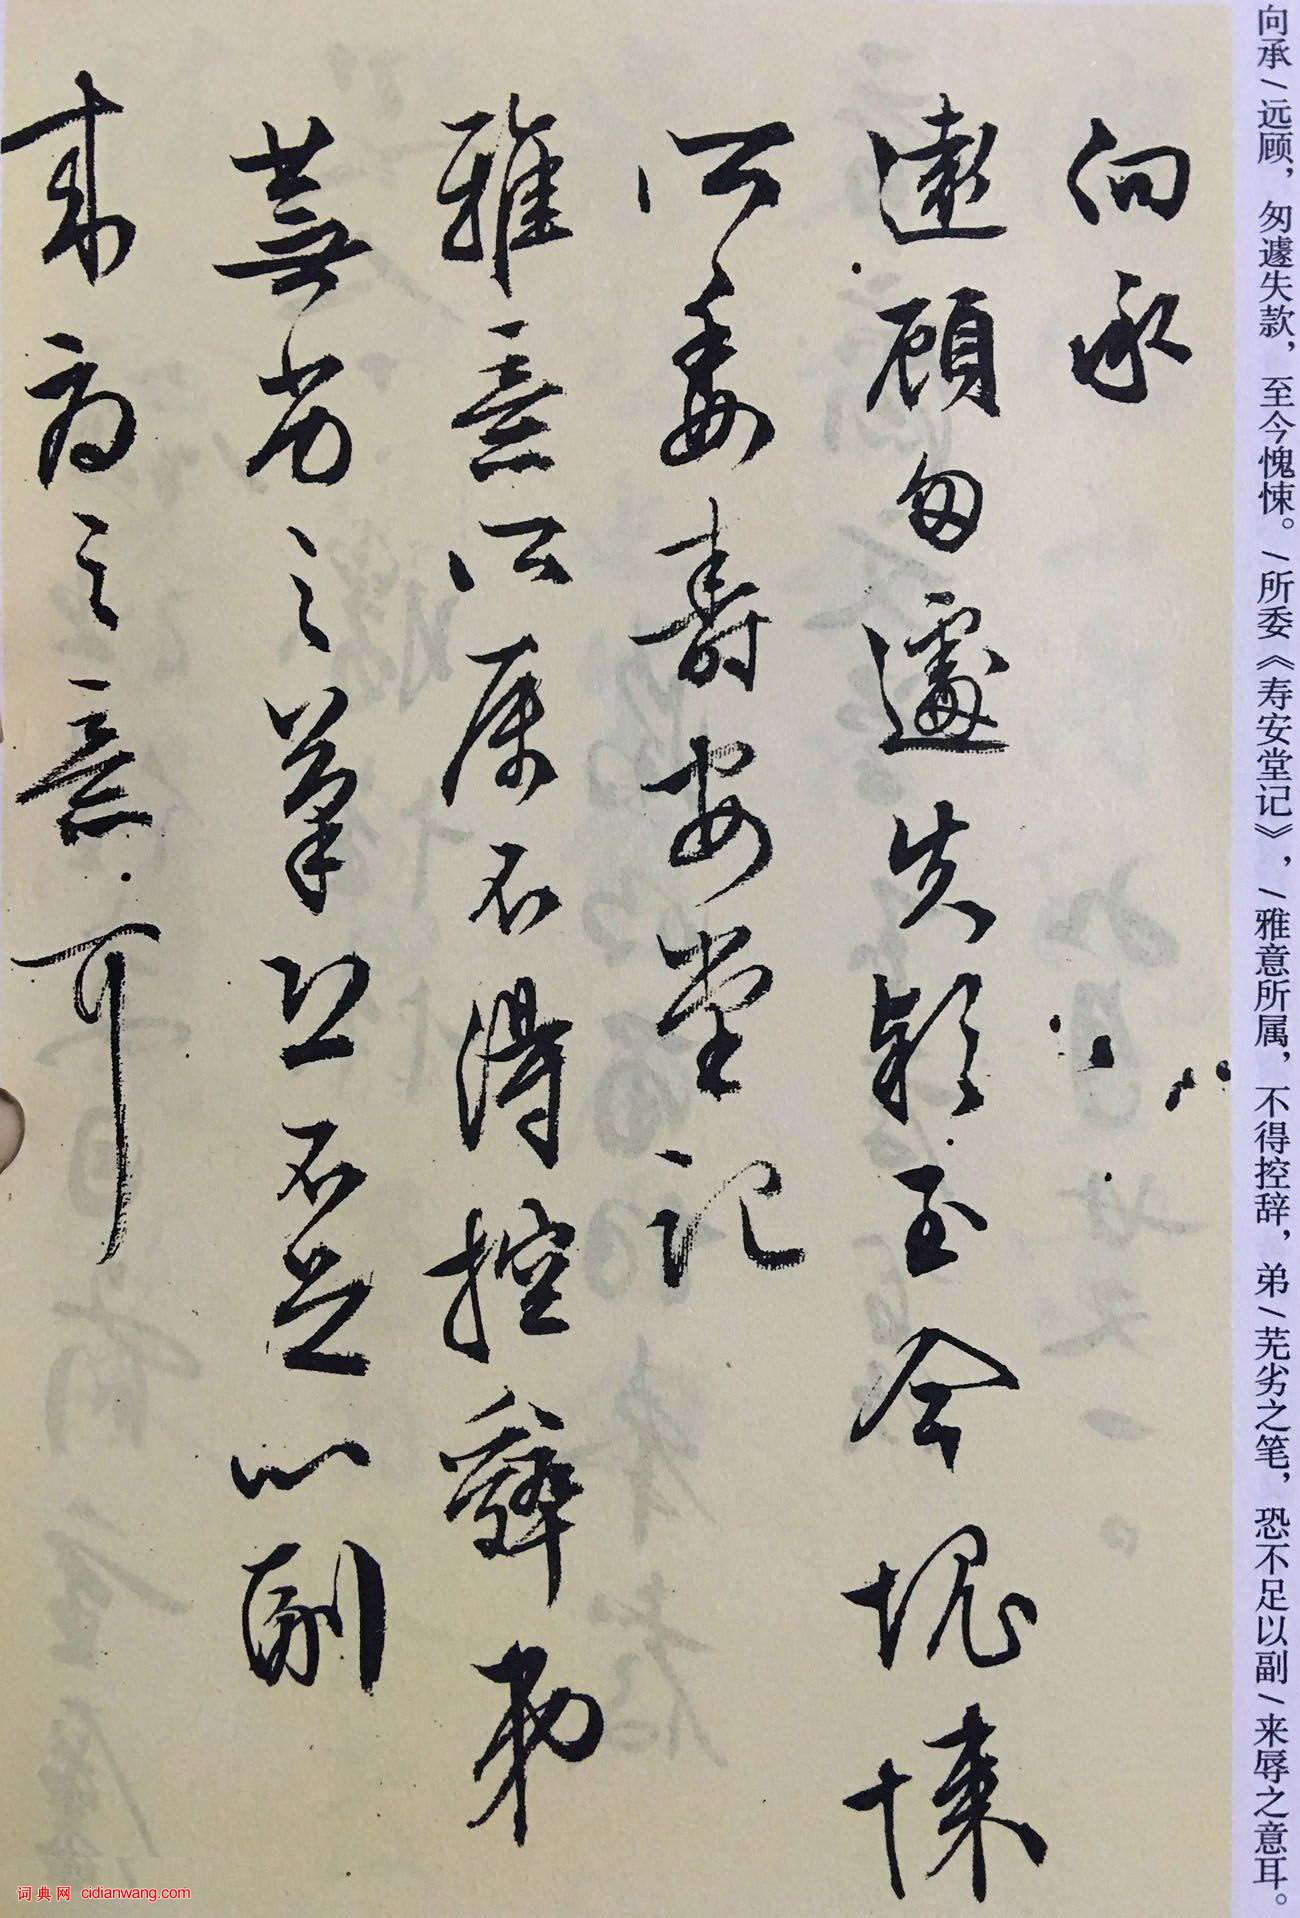 向承
遠顧匆遽失款至今愧悚
所委壽安堂記
雅意所属不得控辭弟
蕪劣之筆恐不足以副
来辱之意耳
向承/远顾，匆遽失款，至今愧悚。/所委《寿安堂记》，/雅意所属，不得控辞，弟/芜劣之笔，恐不足以副/来辱之意耳。
词典网 cidianwang.com